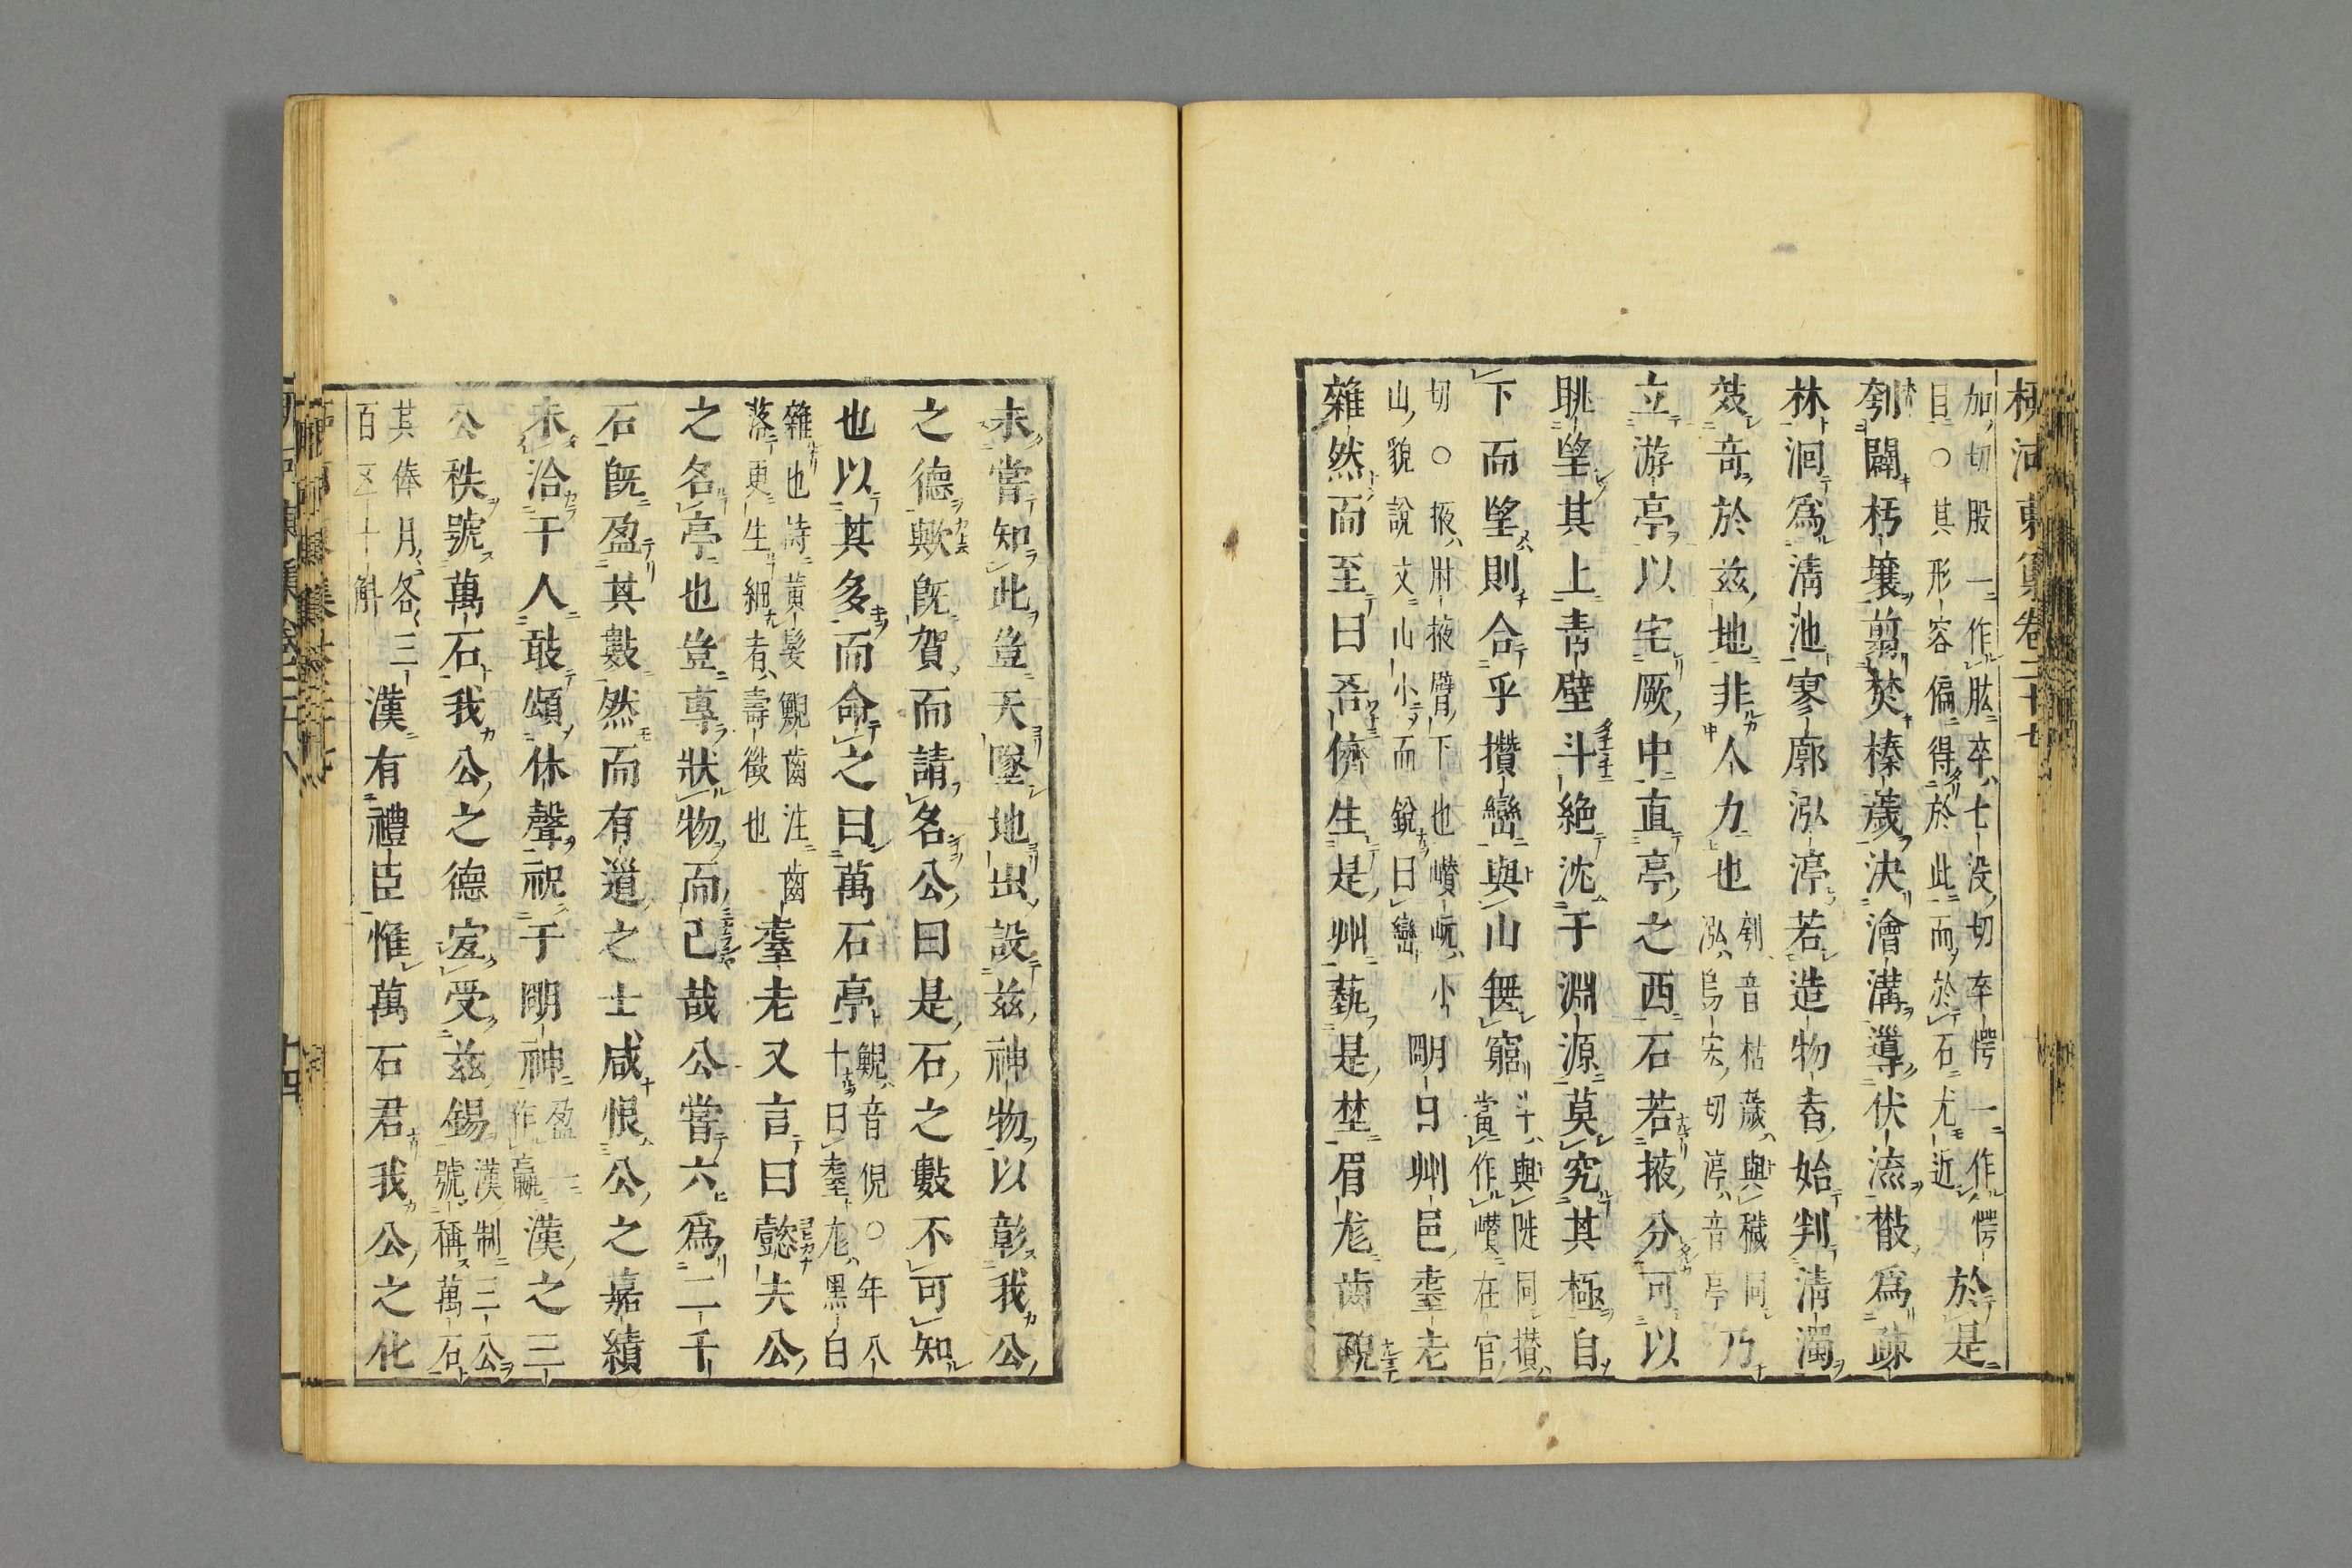 柳河東集卷二十七
加切股一作肱卒七没切卒愕一作愕
目○其形容偏得於此而於石尤近
於是
刳闢朽壤翦焚榛薉決澮溝導伏流散爲疎
林洄爲清池寥廓泓渟若造物者始判清濁
效奇於兹地非人力也
刳音枯薉與穢同
泓烏宏切渟音亭
乃
立游亭以宅厥中直亭之西石若掖分可以
眺望其上青壁斗絶沈于淵源莫究其極自
下而望則合乎攢巒與山無窮
斗與陡同攅
當作巑在官
切○掖肘掖臂下也巑岏小
山貌說文山小而銳曰巒
明日州邑耋老
雜然而至曰吾儕生是州蓺是埜眉厖齒鯢
未嘗知此豈天墜地出設兹神物以彰我公
之德歟既賀而請名公曰是石之數不可知
也以其多而命之曰萬石亭
鯢音倪○年八
十曰耋厖黑白
雜也詩黃髮鯢齒注齒
落更生細者壽徵也
耋老又言曰懿夫公
之名亭也豈專狀物而已哉公嘗六爲二千
石既盈其數然而有道之士咸恨公之嘉績
未洽于人敢頌休聲祝于明神
盈一
作贏
漢之三
公秩號萬石我公之德宜受兹錫
漢制三公
號稱萬石
其俸月各三
百五十斛
漢有禮臣惟萬石君我公之化